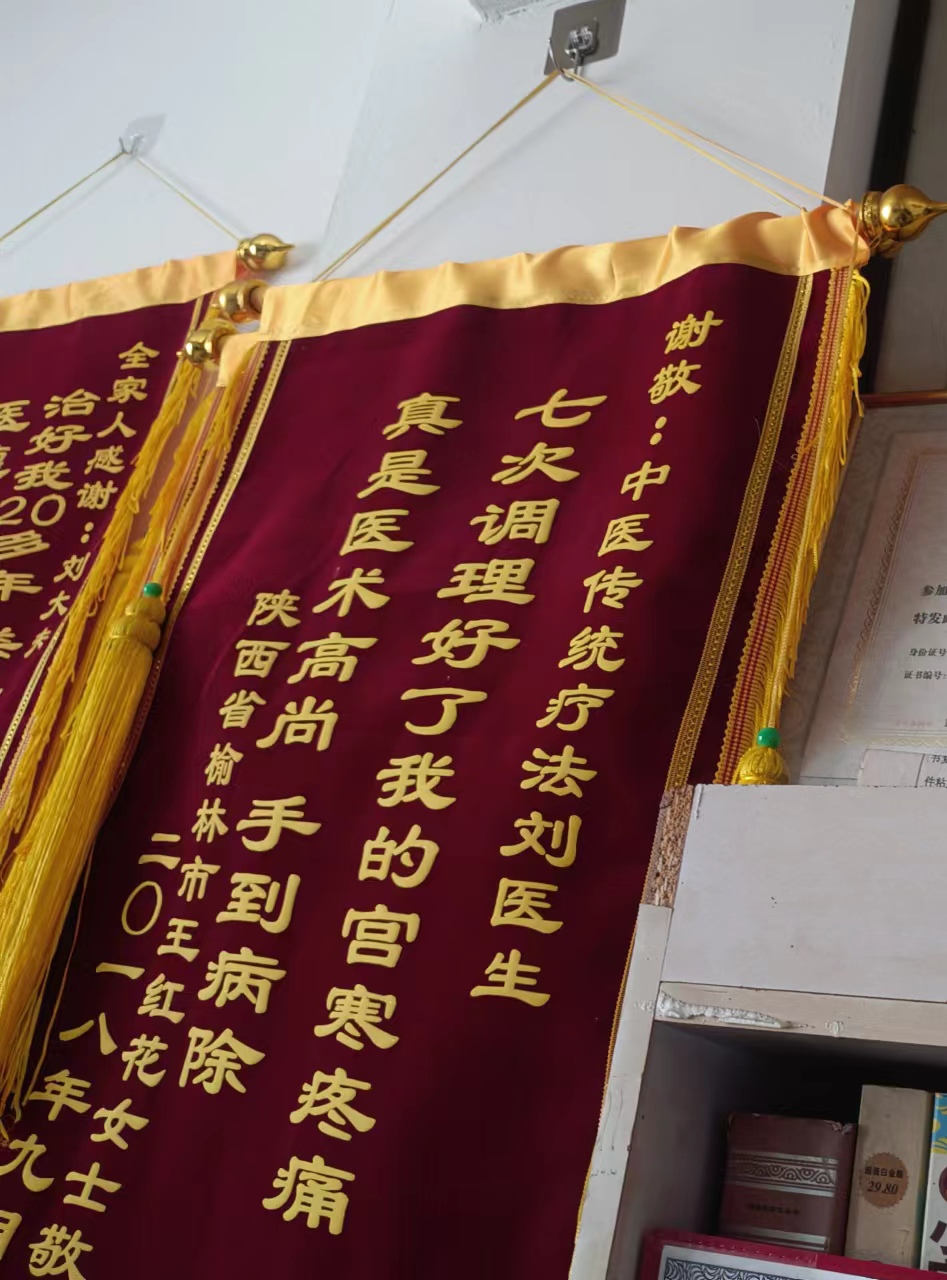 谢敬：中医传统疗法刘医生
七次调理好了我的宫寒疼痛
真是医术高尚 手到病除
陕西省榆林市王红花女士敬
二〇一八年九月
全家人感谢：刘大
治好我
20多年
参加
特发
身份证号
证书编号：
29.80